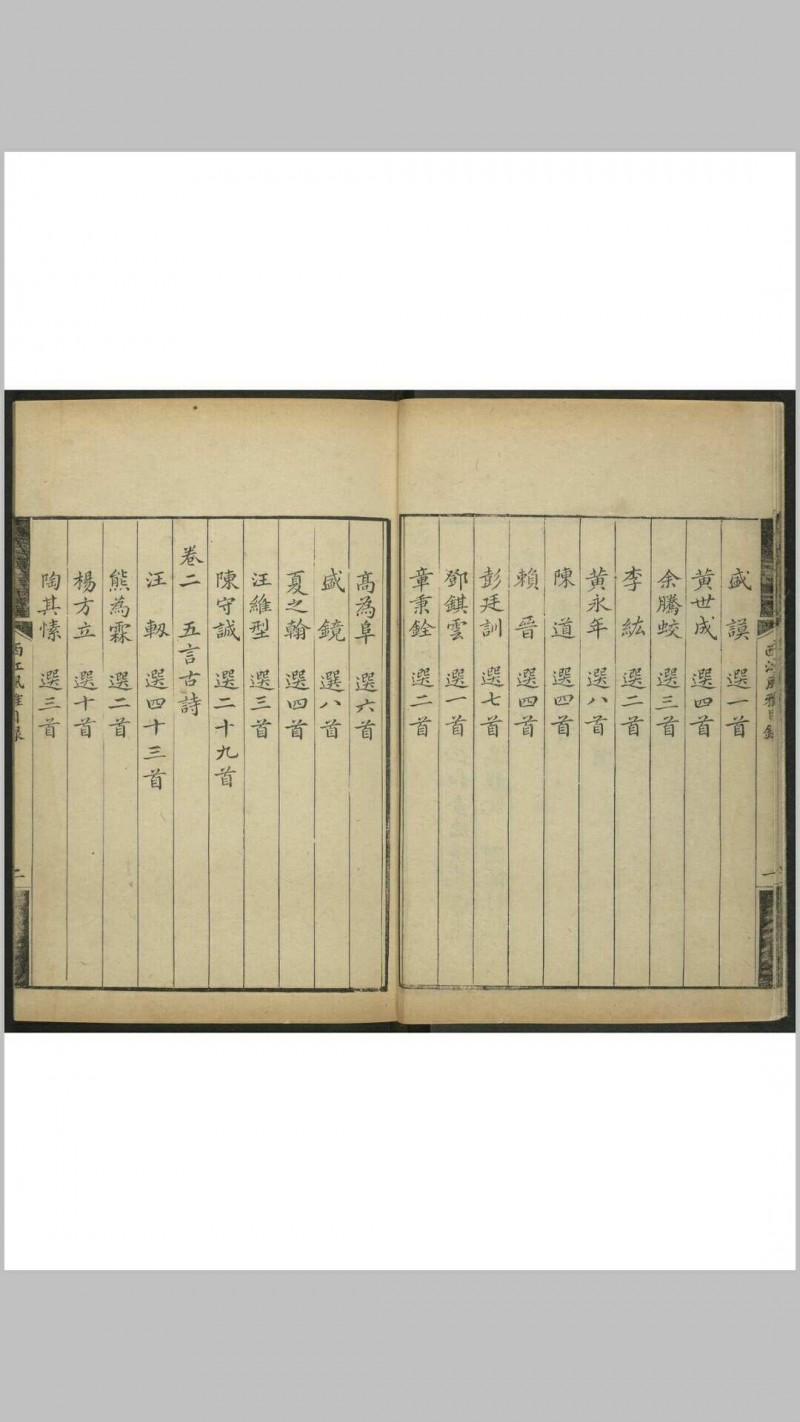 西江風雅目錄
一
盛謨 選一首
黄世成 選四首
余騰蛟 選三首
李紘 選二首
黄永年 選八首
陳道 選四首
賴晉 選四首
彭廷訓 選七首
鄧錤雲 選一首
章秉銓 選二首
髙為阜 選六首
盛鏡 選八首
夏之翰 選四首
汪維型 選三首
陳守誠 選二十九首
卷二 五言古詩
汪軔 選四十三首
熊為霖 選二首
楊方立 選十首
陶其愫 選三首
西江風雅目錄
二